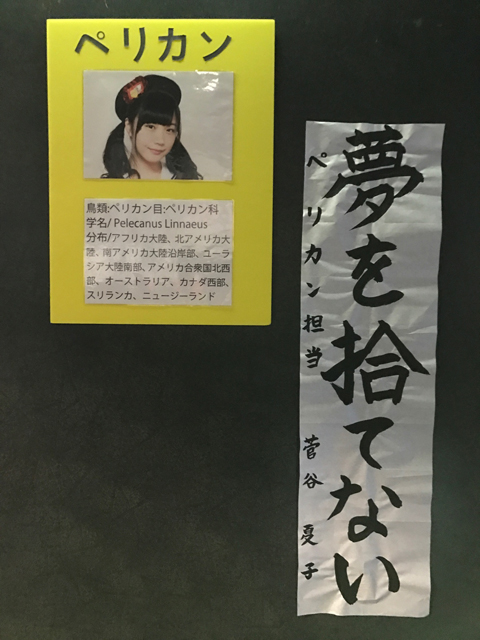 ペリカン
鳥類:ペリカン目:ペリカン科
学名/ Pelecanus Linnaeus
分布/アフリカ大陸、北アメリカ大
陸、南アメリカ大陸沿岸部、ユーラ
シア大陸南部、アメリカ合衆国北西
部、オーストラリア、カナダ西部、
スリランカ、ニュージーランド
夢を拾てない
ペリカン担当 菅谷 夏子